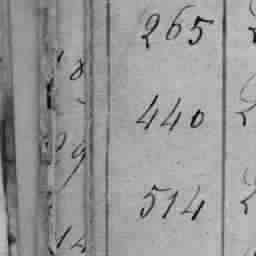 265
18
440
29
514
14